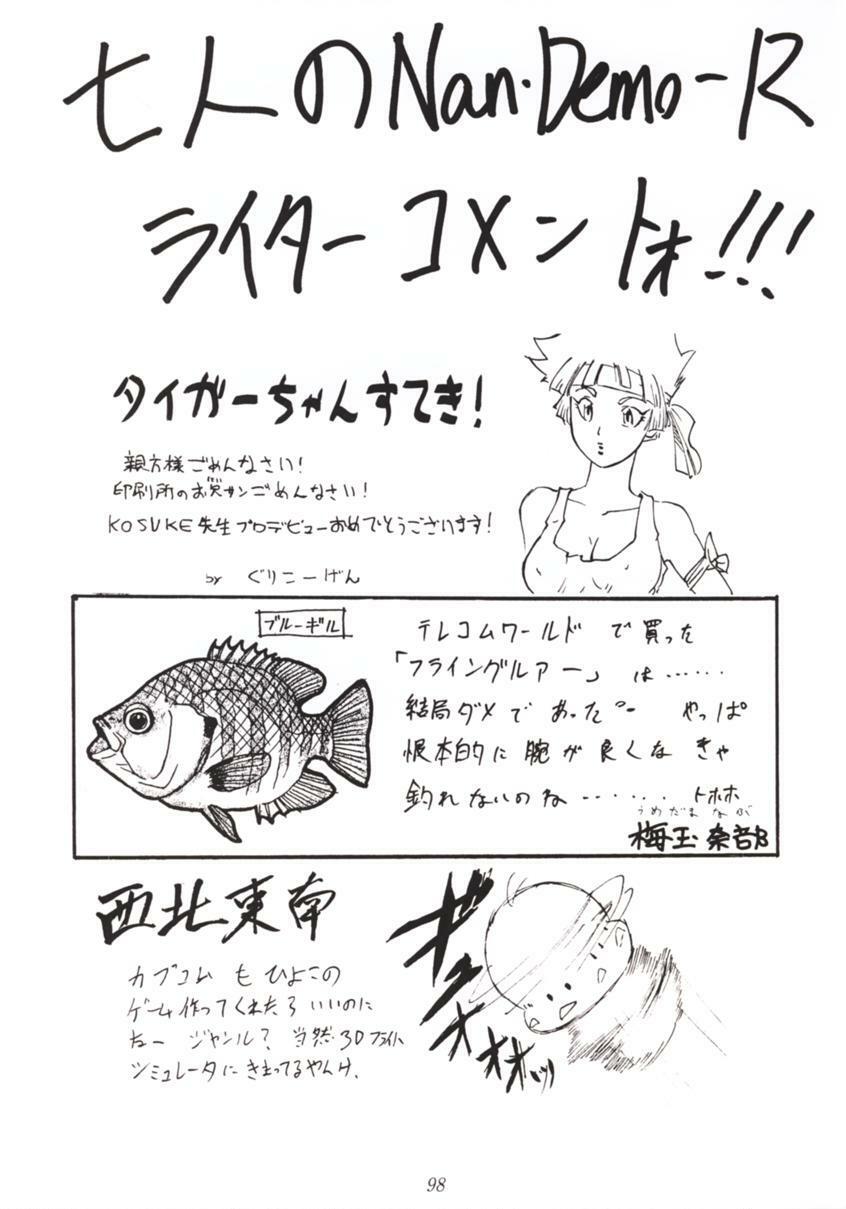 七人のNan・Demo-R
ライターコメントォ!!!
タイガーちゃんすてき!
親方様ごめんなさい!
印刷所のお兄サンごめんなさい!
KOSUKE先生プロデビューおめでとうございます!
by ぐりこーげん
ブルーギル
テレコムワールドで買った
「フライングルアー」は……
結局ダメであった。ー やっぱ
根本的に腕が良くなきゃ
釣れないのね……… トホホ
うめだまなぶ
梅玉奈部
西北東南
カプコムもひよこの
ゲーム作ってくれたらいいのに
なー ジャンル? 当然3Dフライト
シミュレータにきまってるやんけ。
ギュオオオォッ